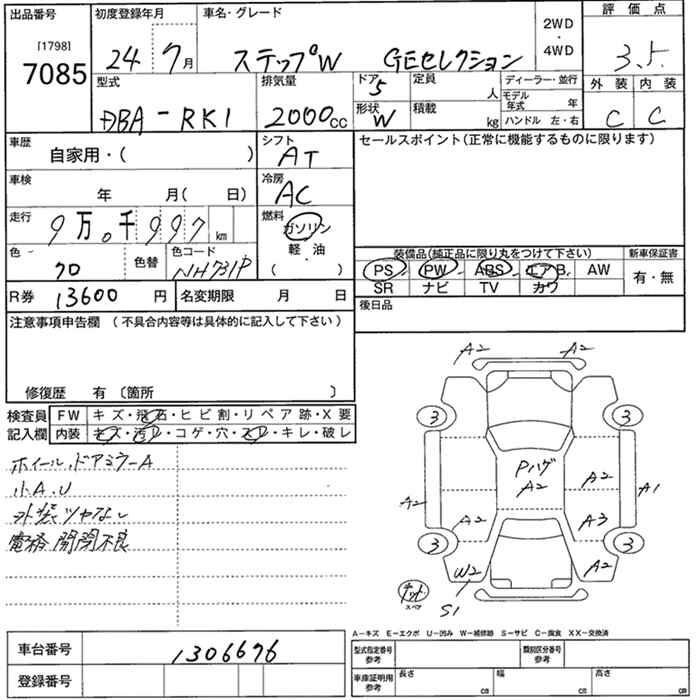 出品番号
[1798]
7085
初度登録年月
24 7月
車名・グレード
ステップW GEセレクション
2WD
・
4WD
評価点
3.5
外装 内装
C C
型式
DBA-RK1
排気量
2000cc
ドア
5
形状
W
定員
人
積載
kg
ディーラー・並行
モデル年式 年
ハンドル 左・右
車歴
自家用・( )
シフト
AT
セールスポイント(正常に機能するものに限ります)
車検
年 月( 日)
冷房
AC
走行
9万0千997km
燃料
ガソリン
軽・油
( ・ )
色
色替
色コード
NH731P
装備品(純正品に限り丸をつけて下さい)
PS PW ABS エアB. AW
SR ナビ TV カワ
新車保証書
有・無
R券 13600円
名変期限 月 日
後日品
注意事項申告欄 (不具合内容等は具体的に記入して下さい)
修復歴 有 〔箇所 〕
検査員
記入欄
FW キズ・飛石・ヒビ割・リペア跡・X要
内装 キズ・汚レ・コゲ・穴・スレ・キレ・破レ
ホイール、ドアミラーA
小A.U
外装ツヤなし
電格 開閉不良
A2 A2
3 3
Pハゲ
A2
A2
A2 A1
A2 A3
3 3
W2 A2
S1
スペア
A-キズ E-エクボ U-凹み W-補修跡 S-サビ C-腐食 XX-交換済
車台番号 1306676
登録番号
型式指定番号
参考
類別区分番号
参考
車庫証明用
参考
長さ cm
幅 cm
高さ cm